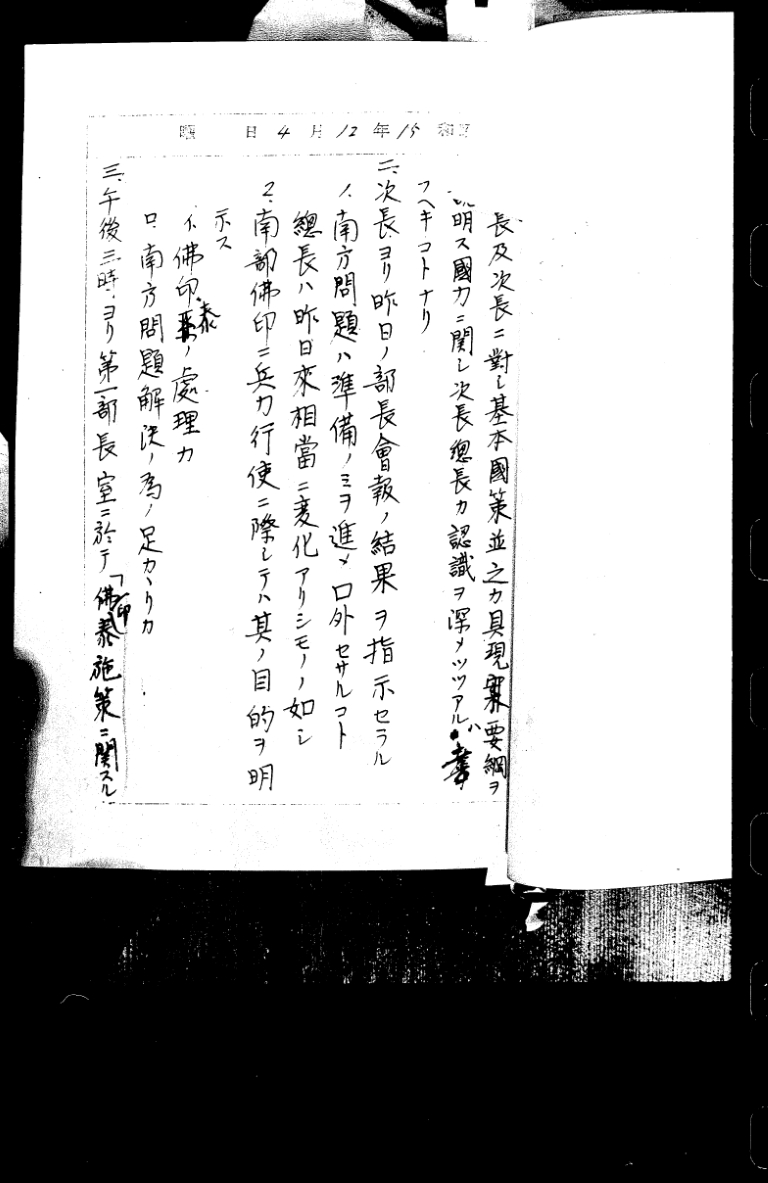 和15年12月4日 曜
長及次長ニ對シ基本國策並之カ具現案要綱ヲ
説明ス國力ニ關シ次長總長カ認識ヲ深メツツアルハ
フヘキコトナリ
二、次長ヨリ昨日ノ部長會報ノ結果ヲ指示セラル
1、南方問題ハ準備ノミヲ進メ口外セサルコト
總長ハ昨日來相當ニ変化アリシモノノ如シ
2、南部佛印ニ兵力行使ニ際シテハ其ノ目的ヲ明
示ス
イ、佛印、泰ノ處理カ
ロ、南方問題解決ノ為ノ足カヽリカ
三、午後三時ヨリ第一部長室ニ於テ「佛印泰施策ニ關スル